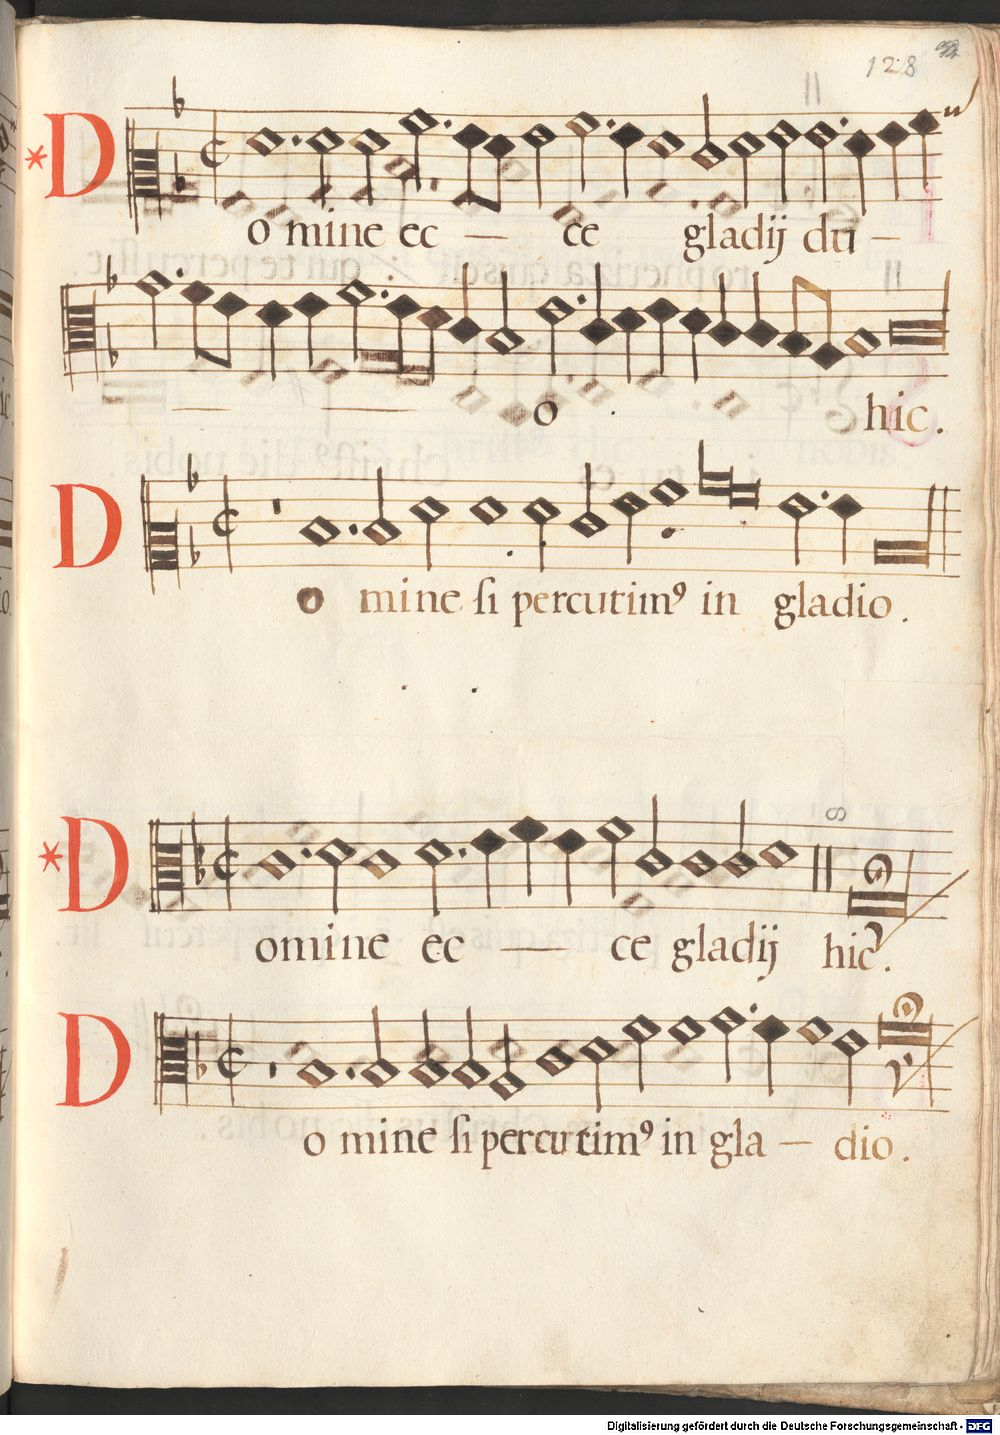 128
* D
o mine ec — ce gladij du —
— — o hic.
D
o mine si percutim⁹ in gladio.
* D
omine ec — ce gladij hic.
D
o mine si percutim⁹ in gla — dio.
Digitalisierung gefördert durch die Deutsche Forschungsgemeinschaft - DFG